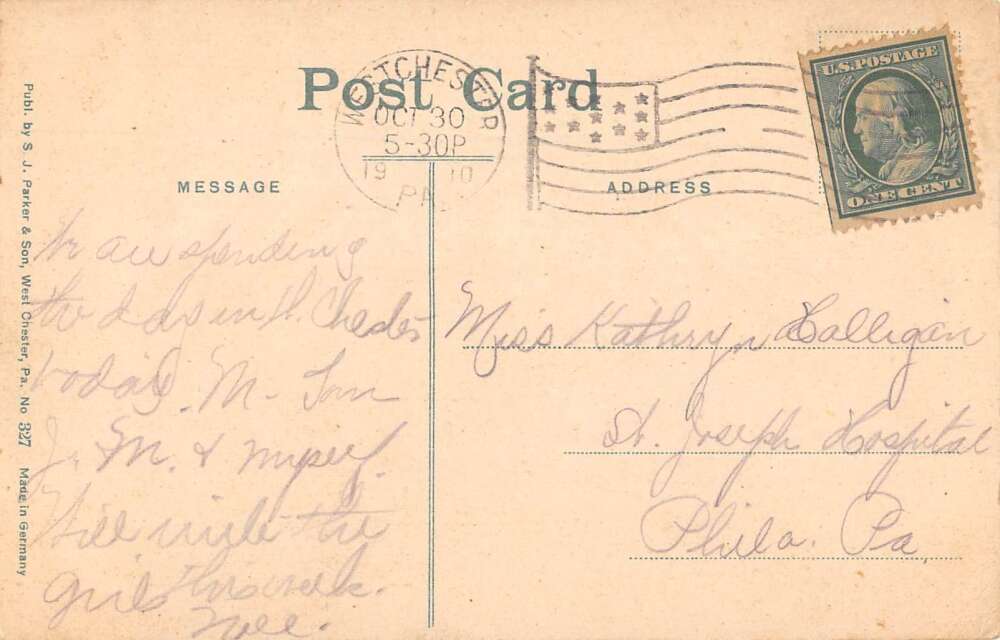 Post Card
WEST CHESTER
OCT 30
5-30P
19 10
PA.
U.S. POSTAGE
ONE CENT
MESSAGE
ADDRESS
Publ. by S. J. Parker & Son, West Chester, Pa. No 327 Made in Germany
We are spending
the day in W. Chester
today. M. Tom
J. M. & myself.
Will write the
girls this week.
Miss Kathryn Halligan
St. Joseph Hospital
Phila. Pa.